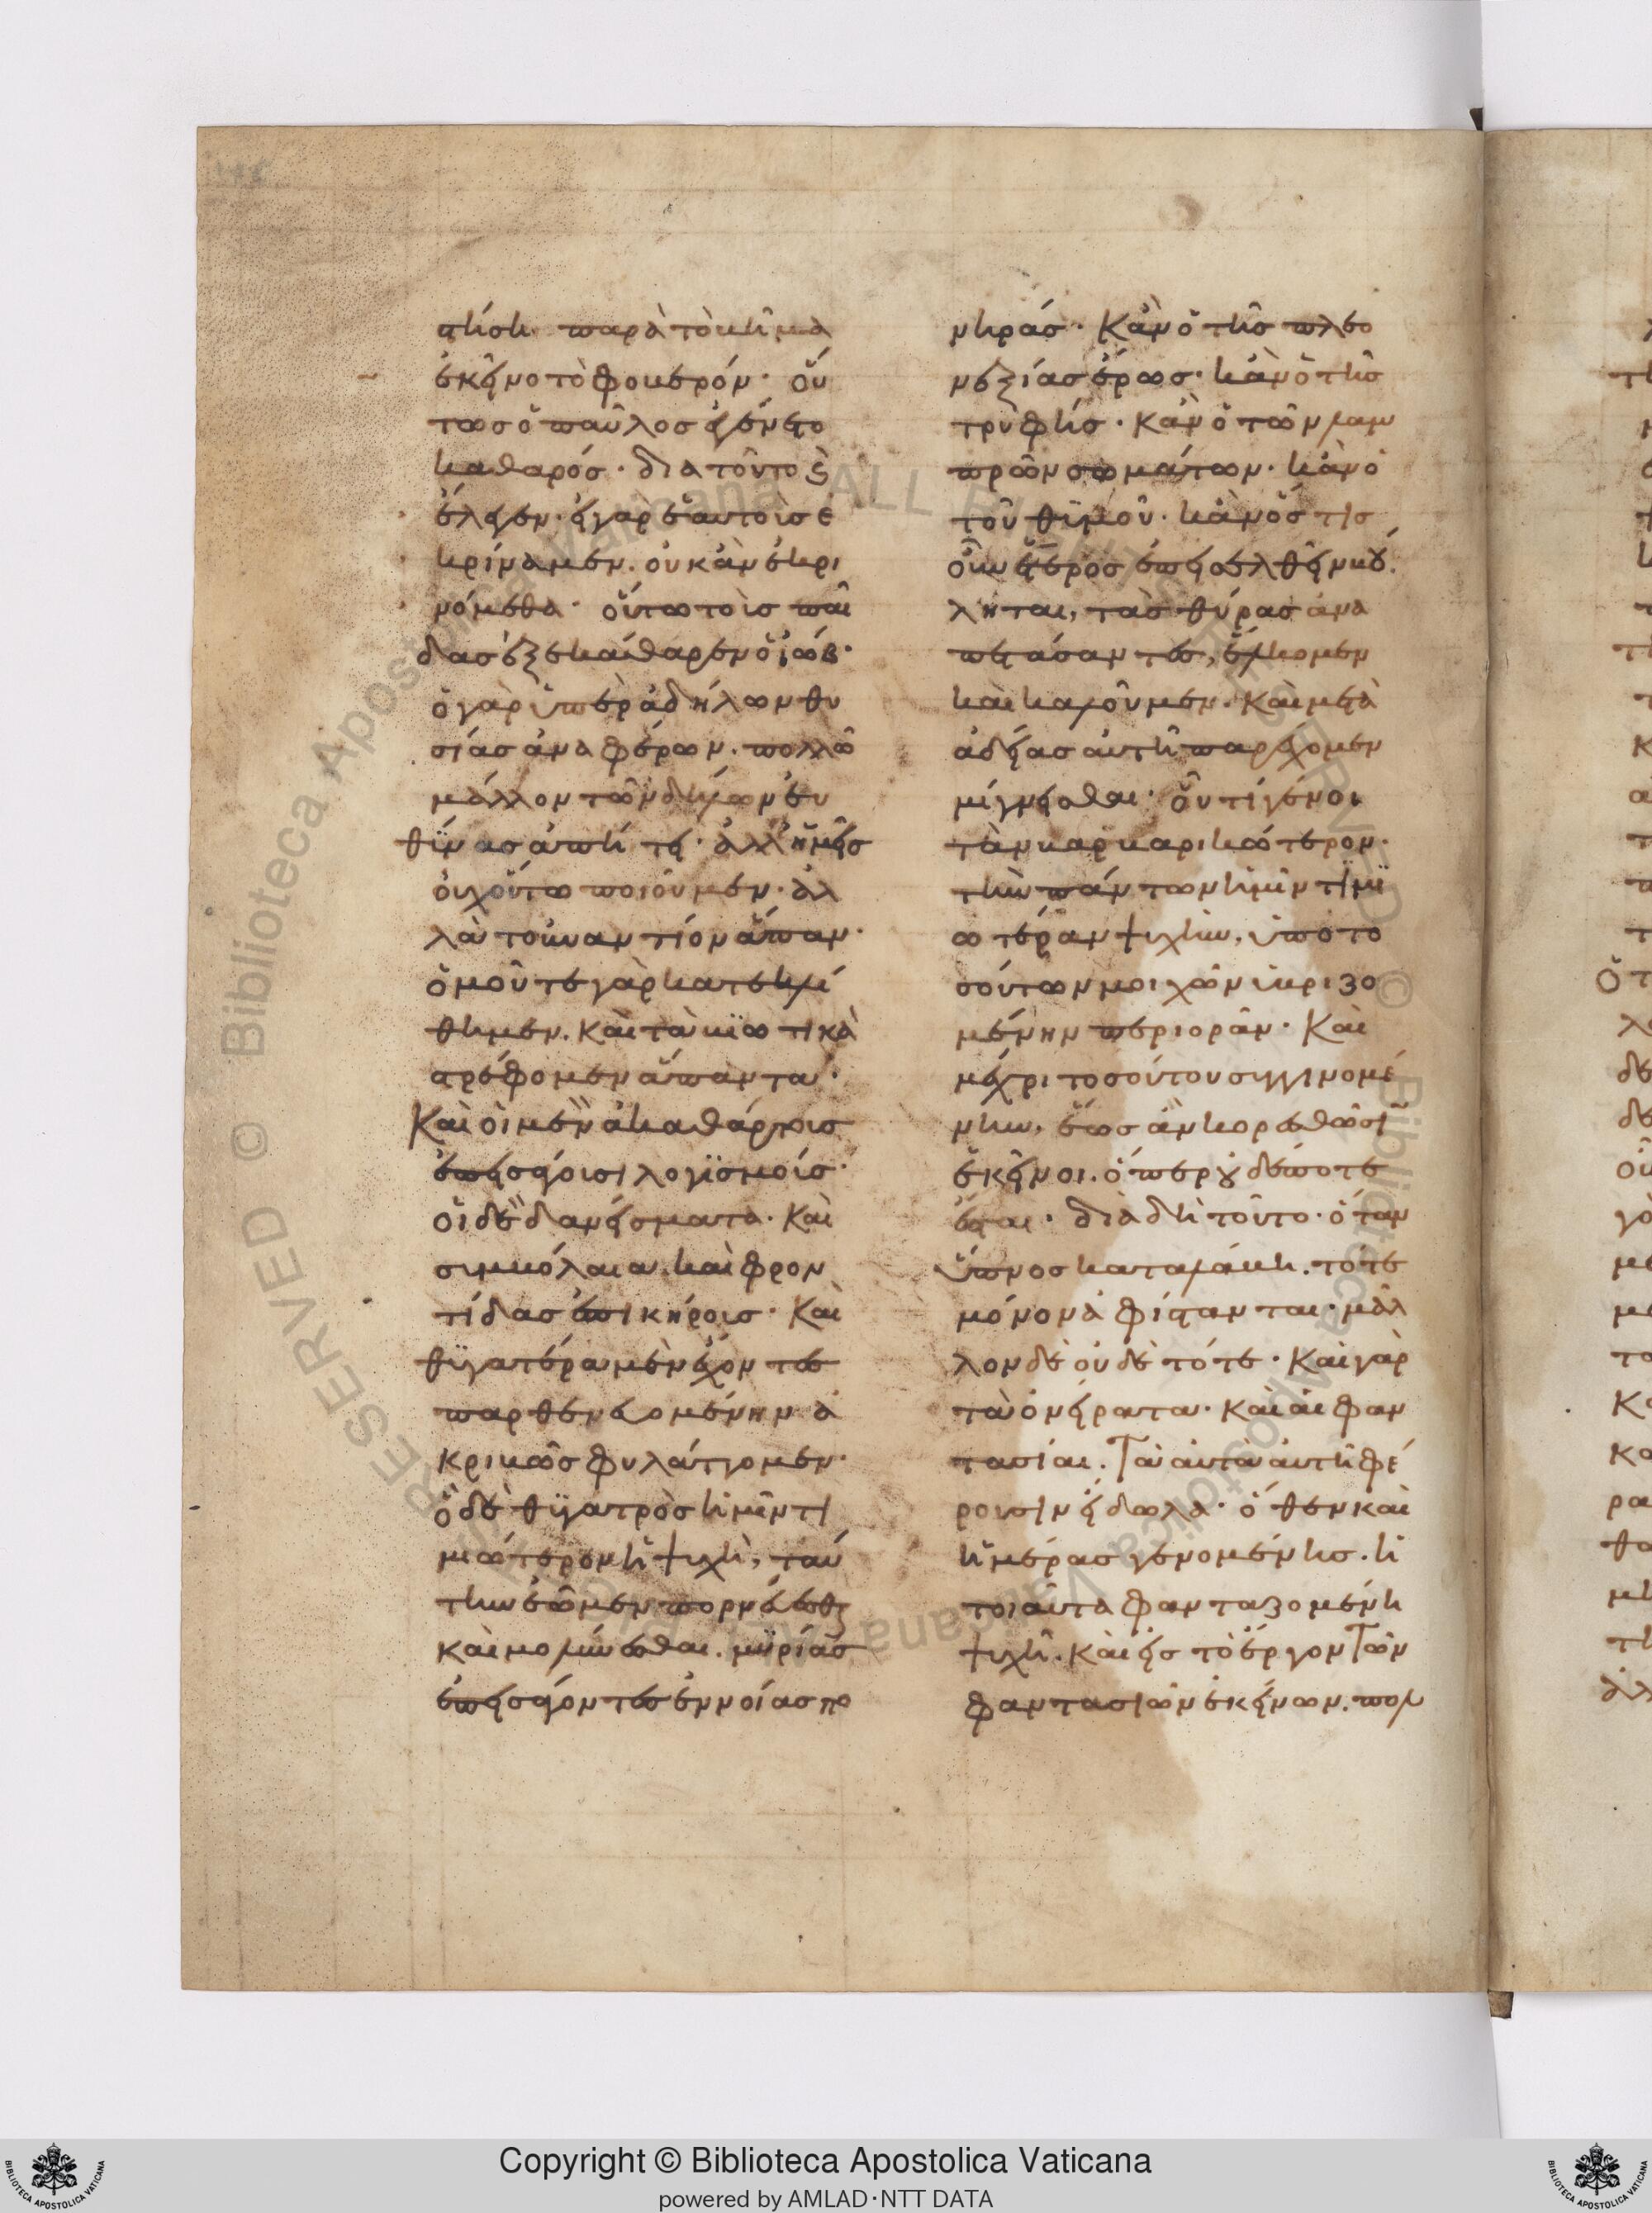 στήση παρὰ τὸ βῆμα
ἐκεῖνο τὸ φοβερόν· οὕ
τως ὁ παῦλος ἐγένετο
καθαρός· διὰ τοῦτο ϗ
ἔλεγεν· εἰ γὰρ ἑαυτοὺς ἐ
κρίναμεν. οὐκ ἂν ἐκρι
νόμεθα· οὕτω τοὺς παῖ
δας ἐξεκάθαρεν ὁ ἰώβ·
ὁ γὰρ ὑπὲρ ἀδήλων θυ
σίας ἀναφέρων. πολλῶ
μᾶλλον τῶν δήλων εὐ
θύνας ἀπήτει· ἀλλ' ἡμεῖς
οὐχ οὕτω ποιοῦμεν· ἀλ
λὰ τοὐναντίον ἅπαν·
ὁμοῦ τε γὰρ κατεκλί
θημεν. καὶ τὰ βιωτικὰ
στρέφομεν ἅπαντα·
Καὶ οἱ μὲν ἀκαθάρτους
ἐπεισφέρουσι λογισμούς·
οἱ δὲ δανείσματα. καὶ
συμβόλαια. καὶ φρον
τίδας ἐπικήρους· καὶ
θυγατέρα μὲν ἔχοντες
παρθενευομένην ἀ
κριβῶς φυλάττομεν·
ὃ δὲ θυγατρὸς ἡμῖν τι
μιώτερον ἡ ψυχὴ, ταύ
την ἐῶμεν πορνεύεσθαι
καὶ μολύνεσθαι. μυρίας
ἐπεισφέροντες ἐννοίας πο
νηράς· Κἂν ὁ τῆς πλεο
νεξίας ἔρως· κἂν ὁ τῆς
τρυφῆς· κἂν ὁ τῶν λαμ
πρῶν σωμάτων· κἂν ὁ
τοῦ θυμοῦ· κἂν ὅστισ
οὖν ἕτερος ἐπεισελθεῖν βού
ληται, τὰς θύρας ἀνα
πετάσαντες, ἕλκομεν
καὶ καλοῦμεν· Καὶ μετὰ
ἀδείας αὐτῆ παρέχομεν
μίγνυσθαι· οὗ τί γένοι
τ' ἂν βαρβαρικώτερον·
τὴν πάντων ἡμῖν τιμι
ωτέραν ψυχὴν, ὑπὸ το
σούτων μοιχῶν ὑβριζο
μένην περιορᾶν· Καὶ
μέχρι τοσούτου συγγινομέ
νην, ἕως ἂν κορεσθῶσιν
ἐκεῖνοι. ὅπερ οὐδέποτε
ἔσται· διὰ δὴ τοῦτο· ὅταν
ὕπνος καταλάβη. τότε
μόνον ἀφίστανται· μᾶλ
λον δὲ οὐδὲ τότε· Καὶ γὰρ
τὰ ὀνείρατα· καὶ αἱ φαν
τασίαι. τὰ αὐτὰ αὐτῆ φέ
ρουσιν εἴδωλα· ὅθεν καὶ
ἡμέρας γενομένης. ἡ
τοιαῦτα φανταζομένη
ψυχὴ. καὶ εἰς τὸ ἔργον τῶν
φαντασιῶν ἐκείνων. πολ
Copyright © Biblioteca Apostolica Vaticana
powered by AMLAD·NTT DATA